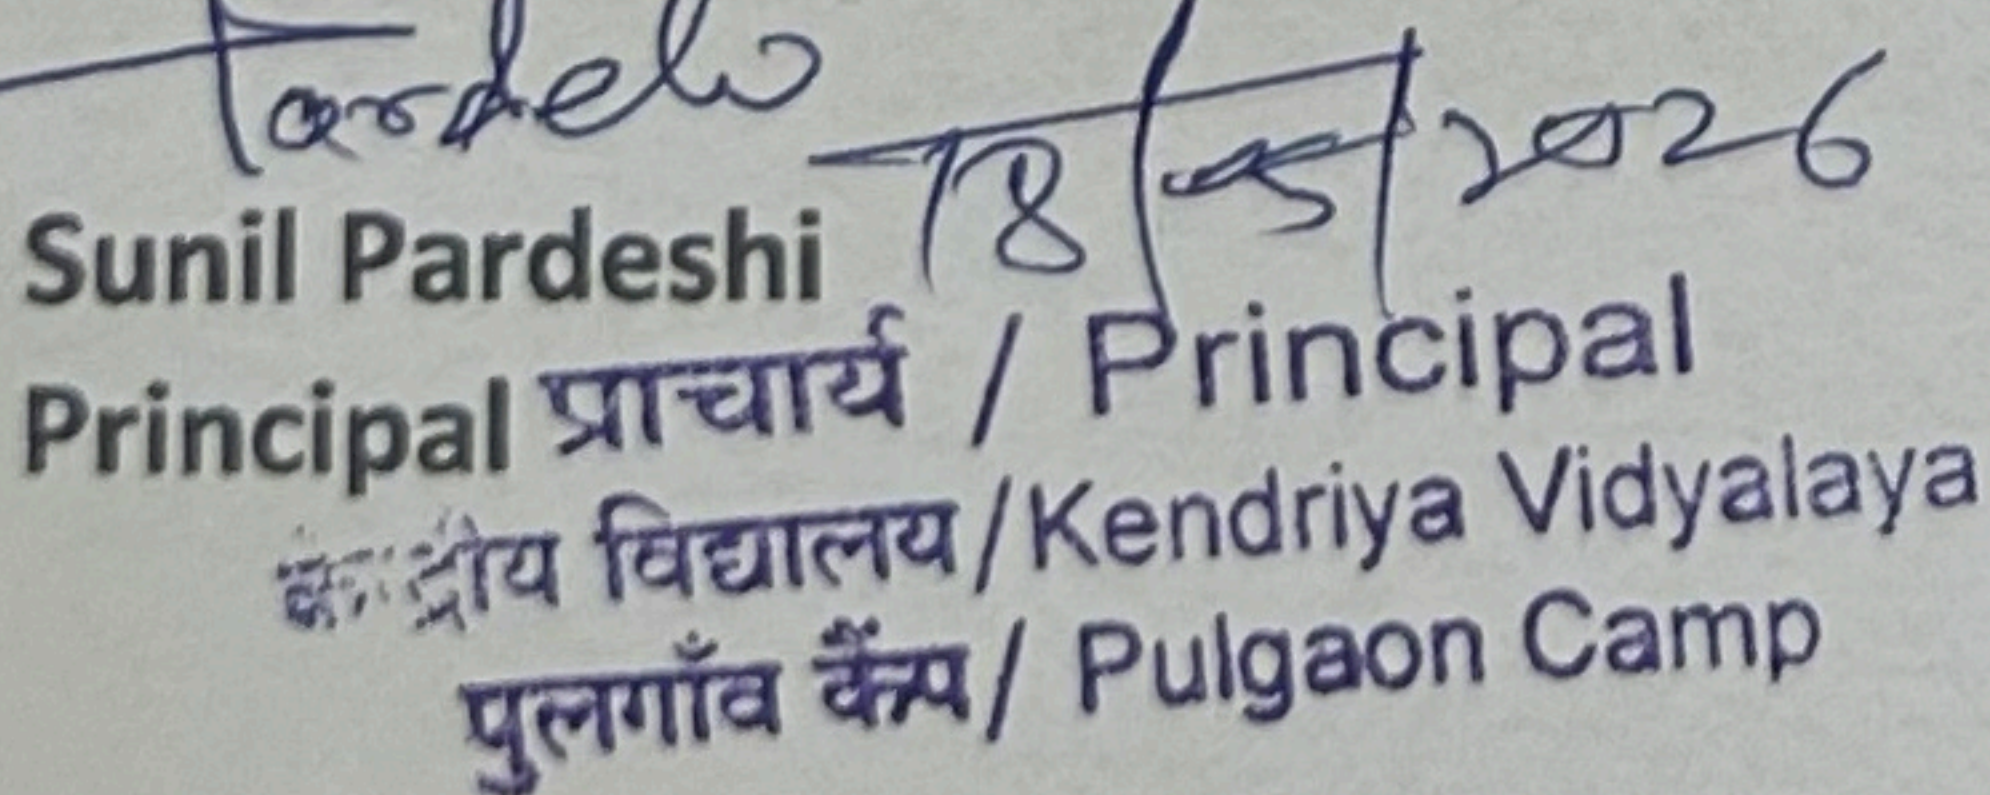 Pardeshi 18/5/2026
Sunil Pardeshi
Principal प्राचार्य / Principal
केन्द्रीय विद्यालय/Kendriya Vidyalaya
पुलगाँव कैंम्प/ Pulgaon Camp